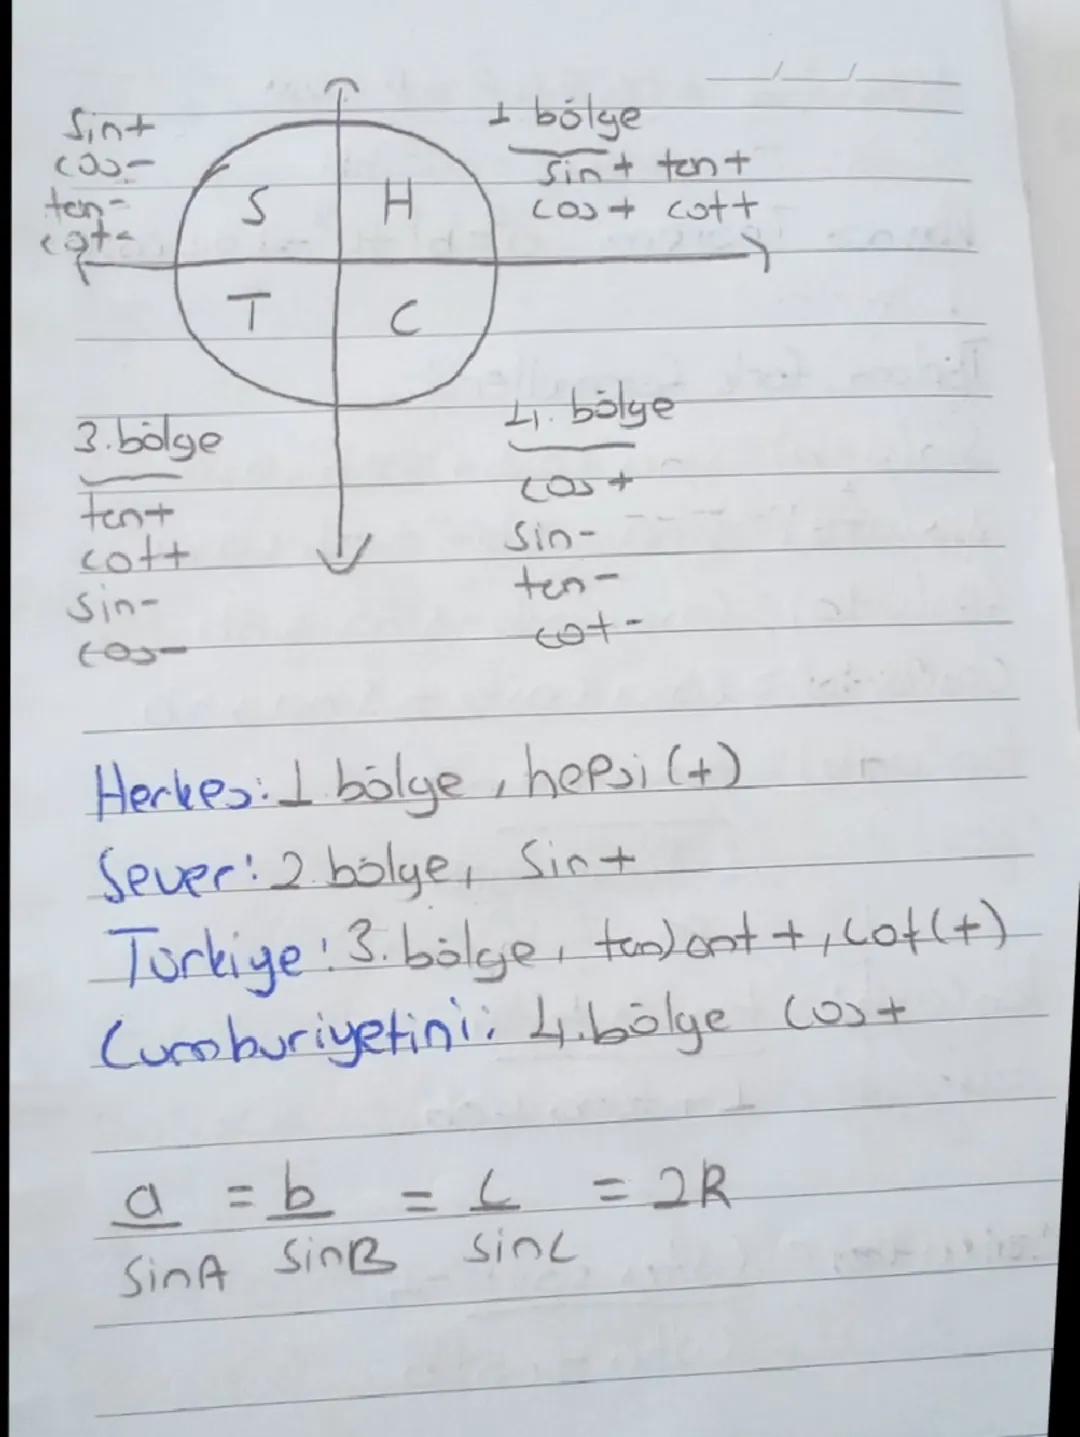 1 bölge
sin+ tan+
cos+ cot+
sin+
cos-
tan-
cot-
S H
T C
3.bölge
tan+
cot+
sin-
cos-
4. bölge
cos+
sin-
tan-
cot-
Herkes: 1.bölge, hepsi (+)
Sever: 2.bölge, Sin+
Türkiye: 3.bölge, tanjant +, cot(+)
Cumhuriyetini: 4.bölge cos+
a/sinA = b/sinB = c/sinC = 2R